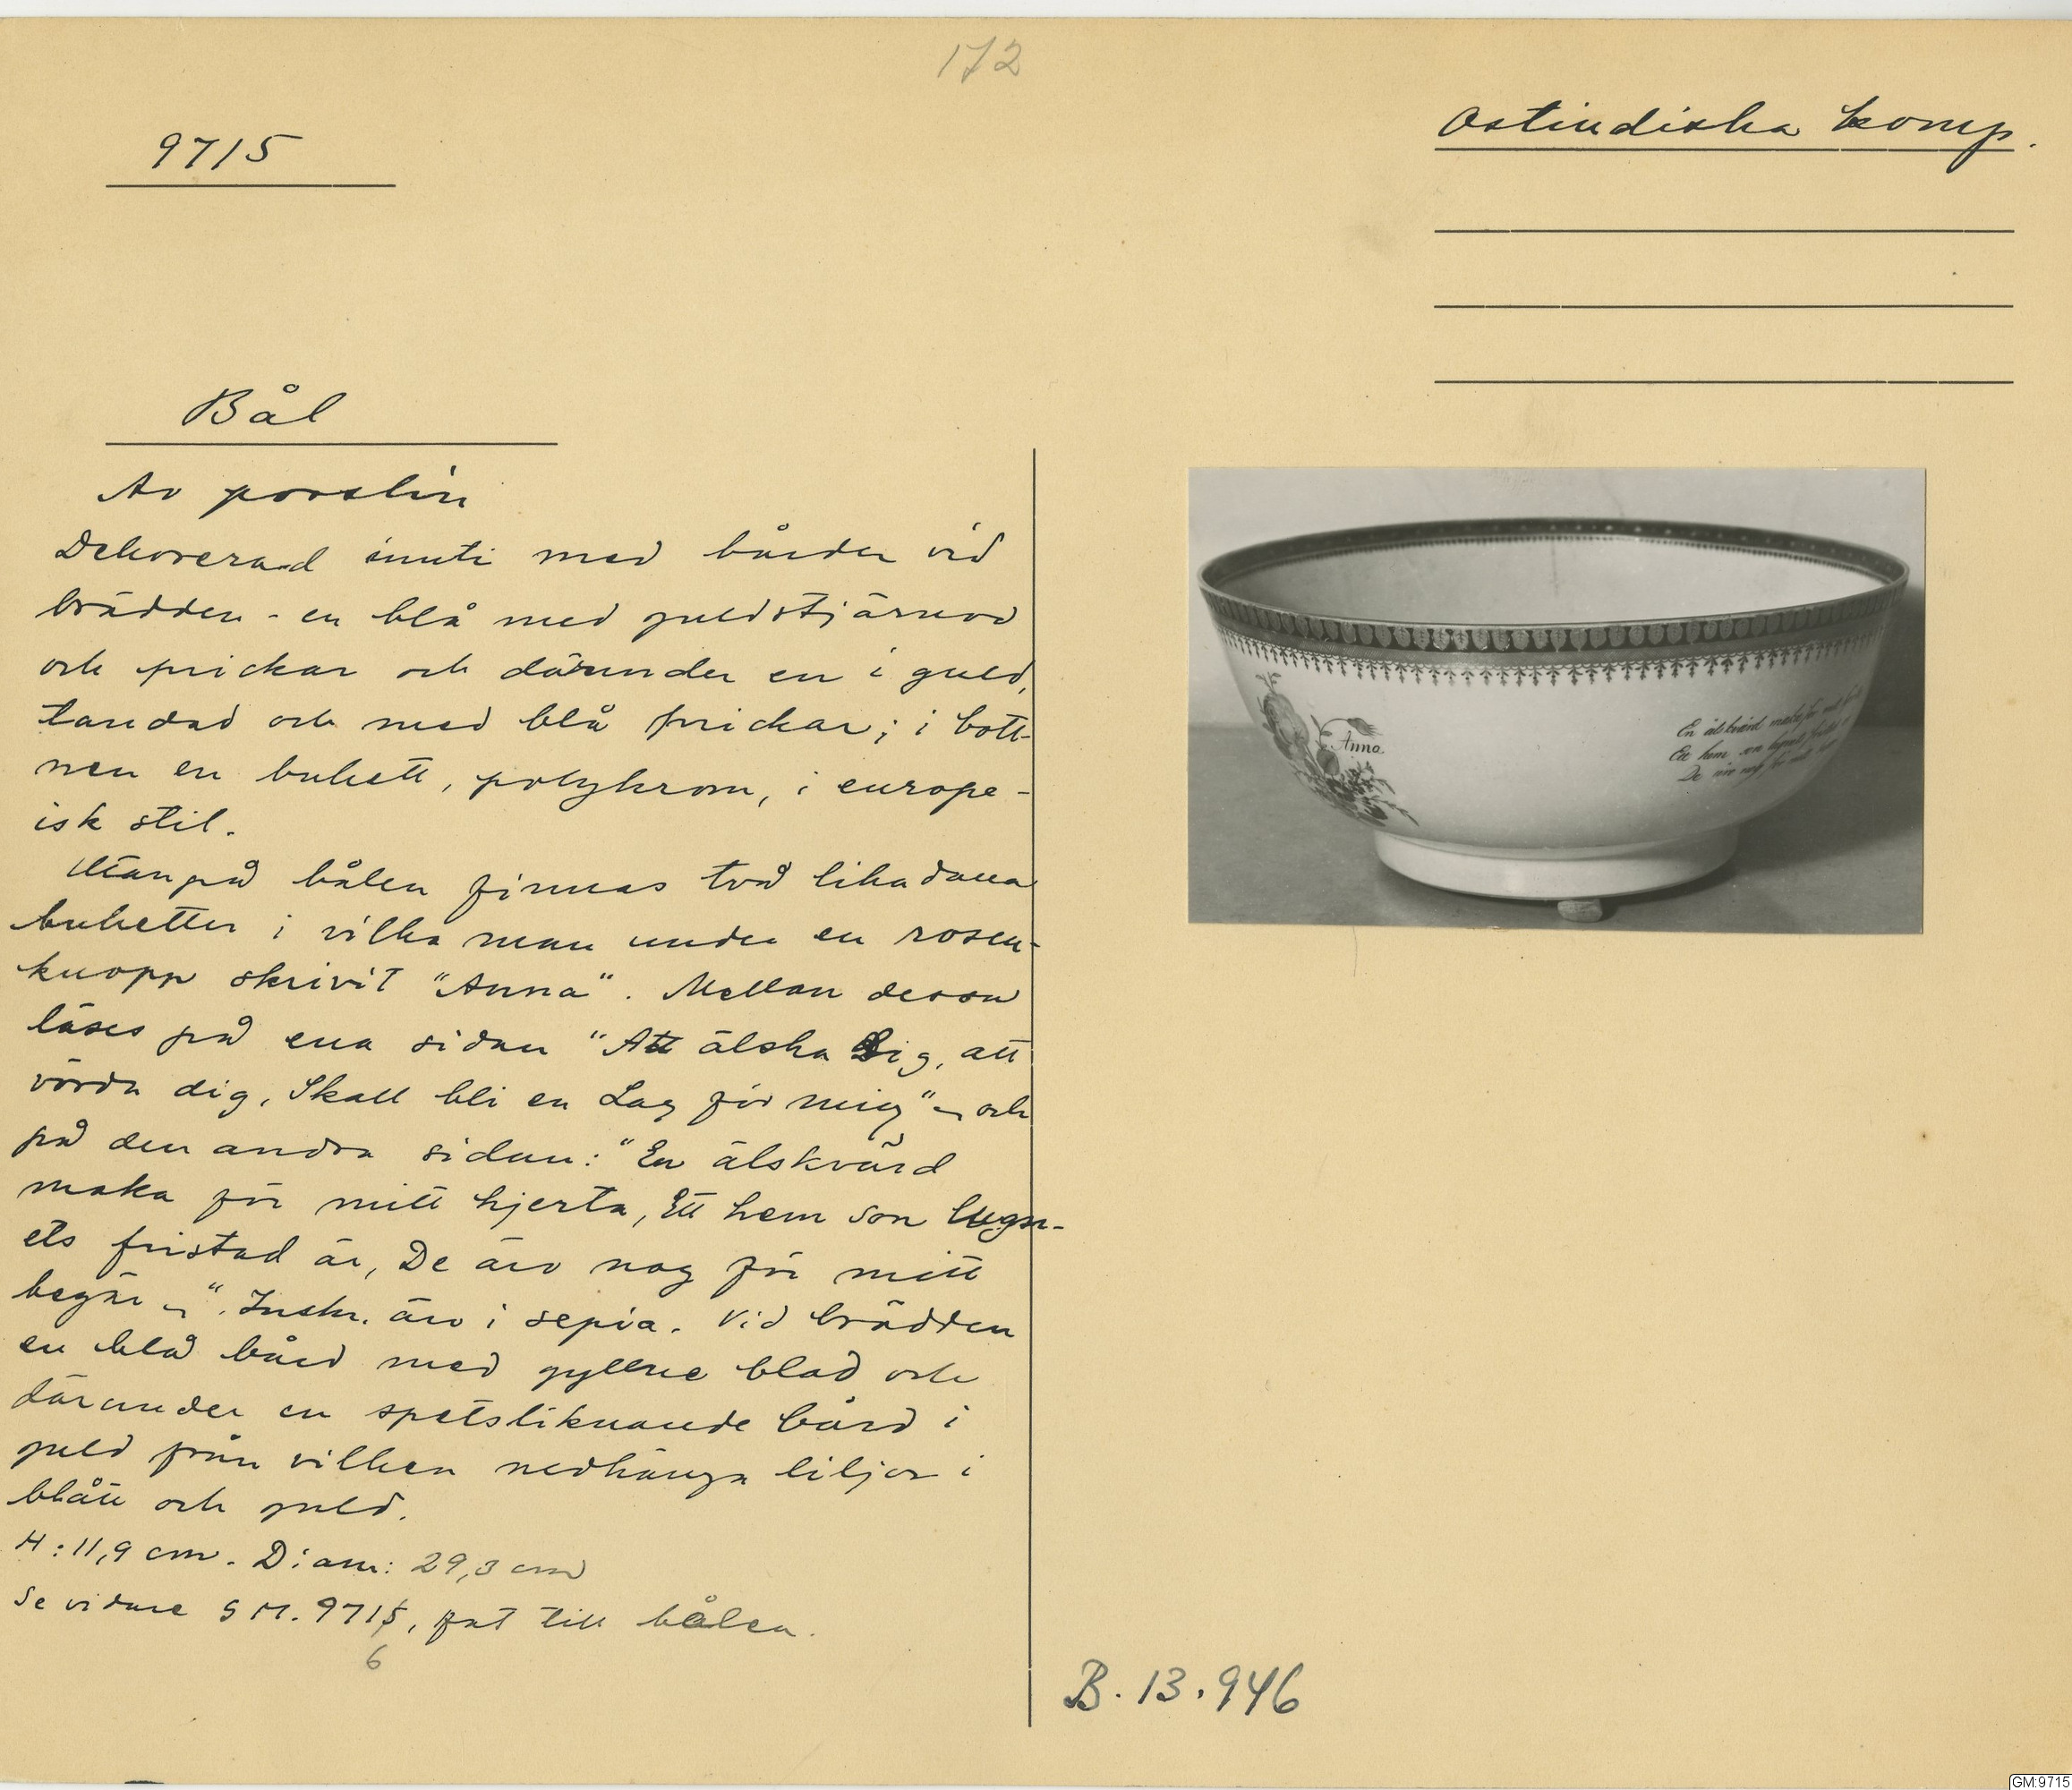 172
9715
Ostindiska komp.
Bål
Av porslin
Dekorerad inuti med bårder vid
brädden - en blå med guldstjärnor
och prickar och därunder en i guld,
tandad och med blå prickar; i bott-
nen en bukett, polykrom, i europe-
isk stil.
Utanpå bålen finnas två likadana
buketter i vilka man under en rosen-
knopp skrivit "Anna". Mellan dessa
läses på ena sidan "Att älska Dig, att
vörda dig, Skall bli en Lag för mig" och
på den andra sidan: "En älskvärd
maka för mitt hjerta, Ett hem som lugn-
ets fristad är, De äro nog för mitt
begär". Inskr. äro i sepia. Vid brädden
en blå bård med gyllne blad och
därunder en spetsliknande bård i
guld från vilken nedhänga liljor i
blått och guld.
H: 11,9 cm. Diam: 29,3 cm
Se vidare GM. 9715, fat till bålen.
6
Anna
En älskvärd maka för mitt
Ett hem som lugnets
De äro nog för mitt
B. 13.946
GM:9715